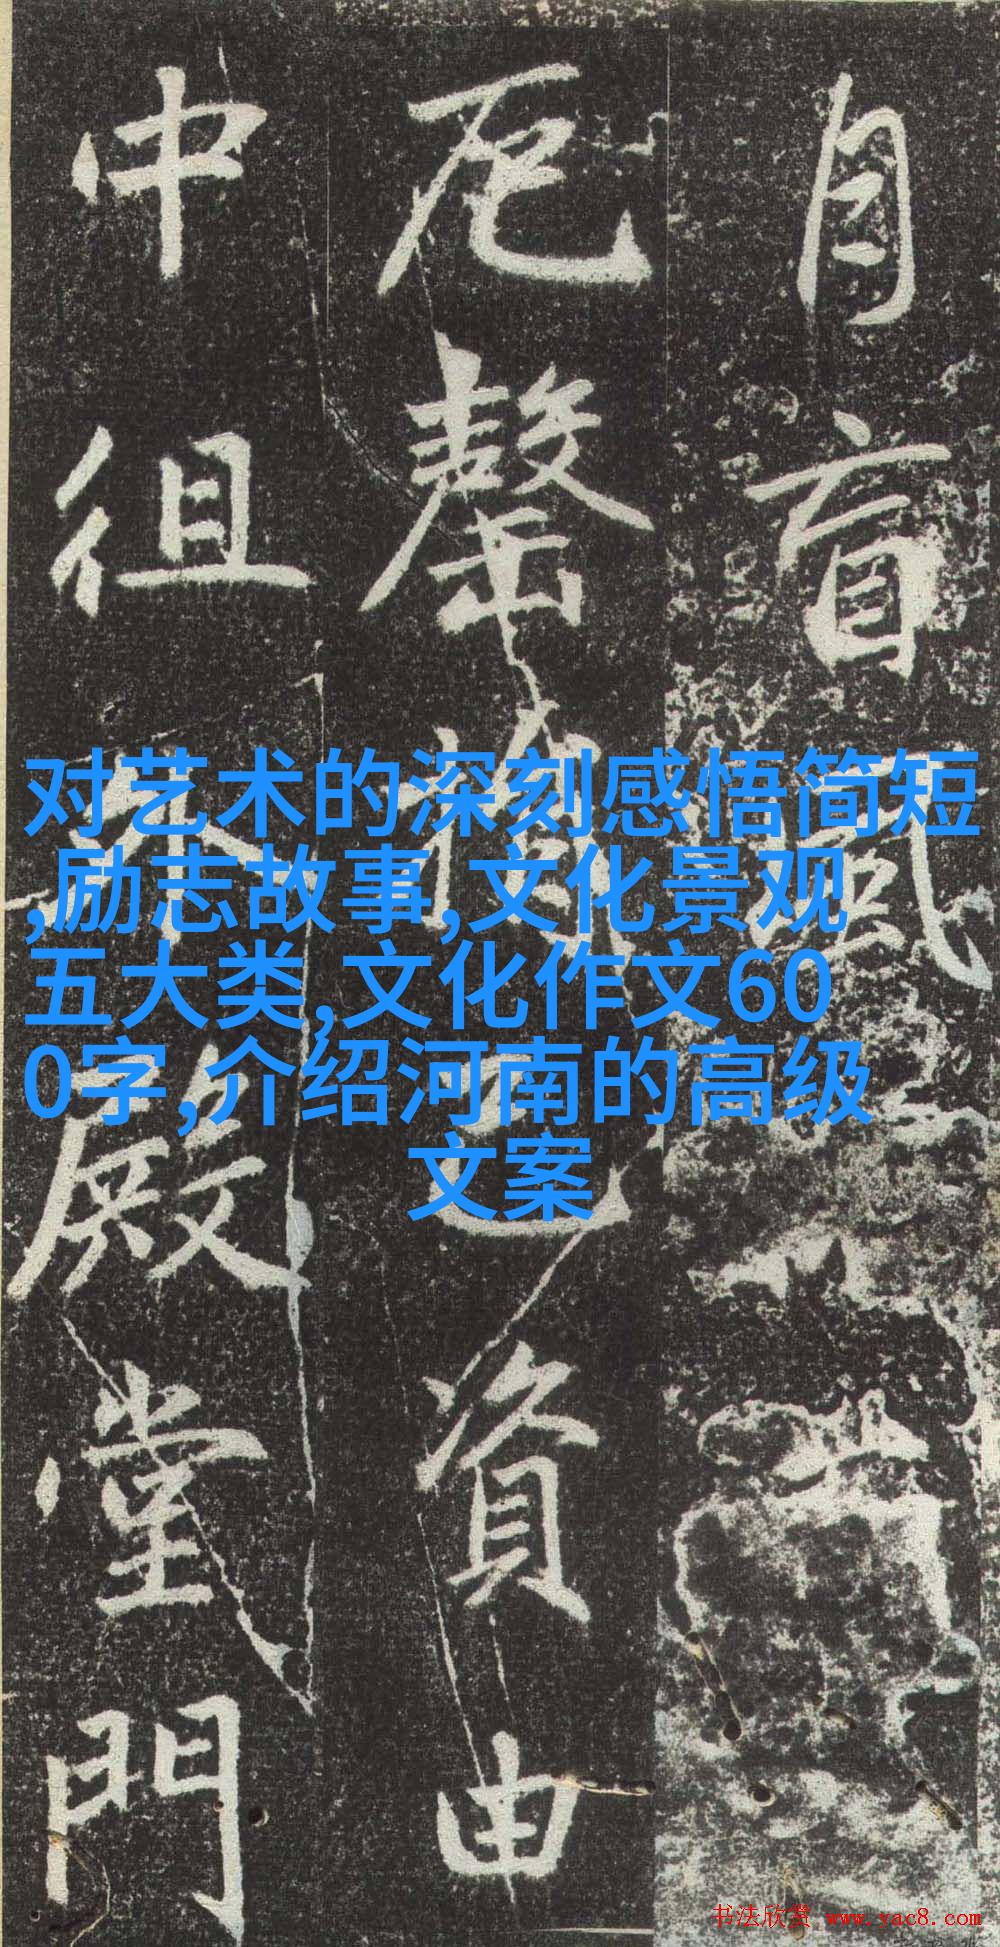 盲風
罄
已資由
中徂
殿堂門
对艺术的深刻感悟简短
,励志故事,文化景观
五大类,文化作文60
0字,介绍河南的高级
文案
书法欣赏 www.yac8.com